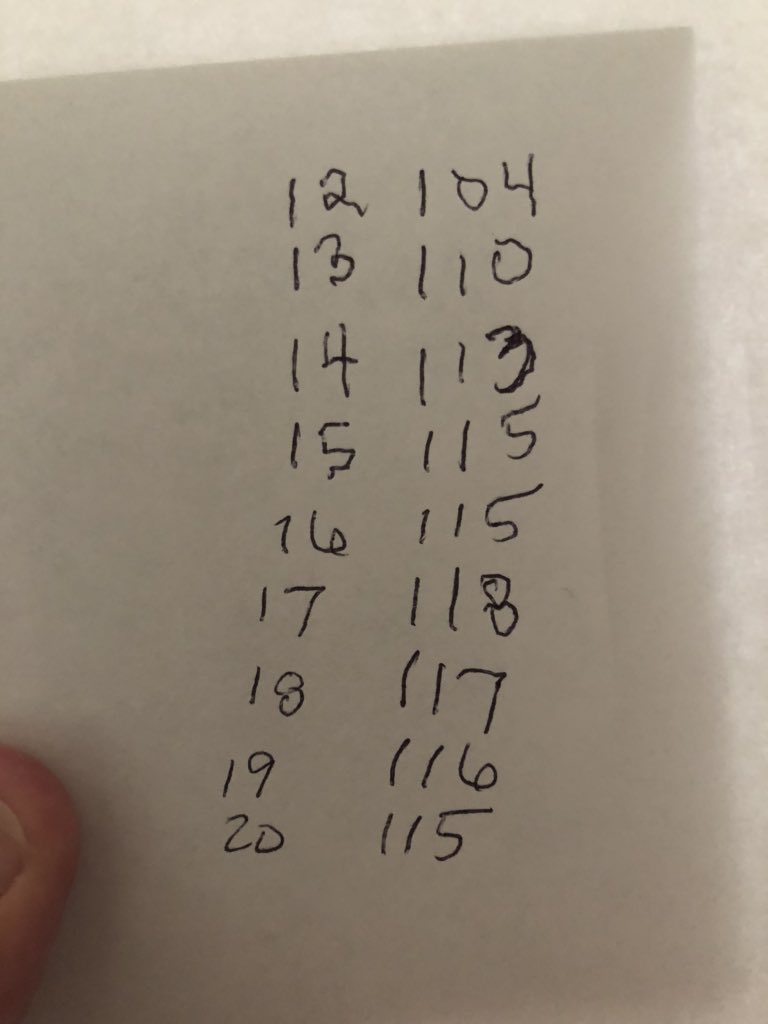 12 104
13 110
14 113
15 115
16 115
17 118
18 117
19 116
20 115